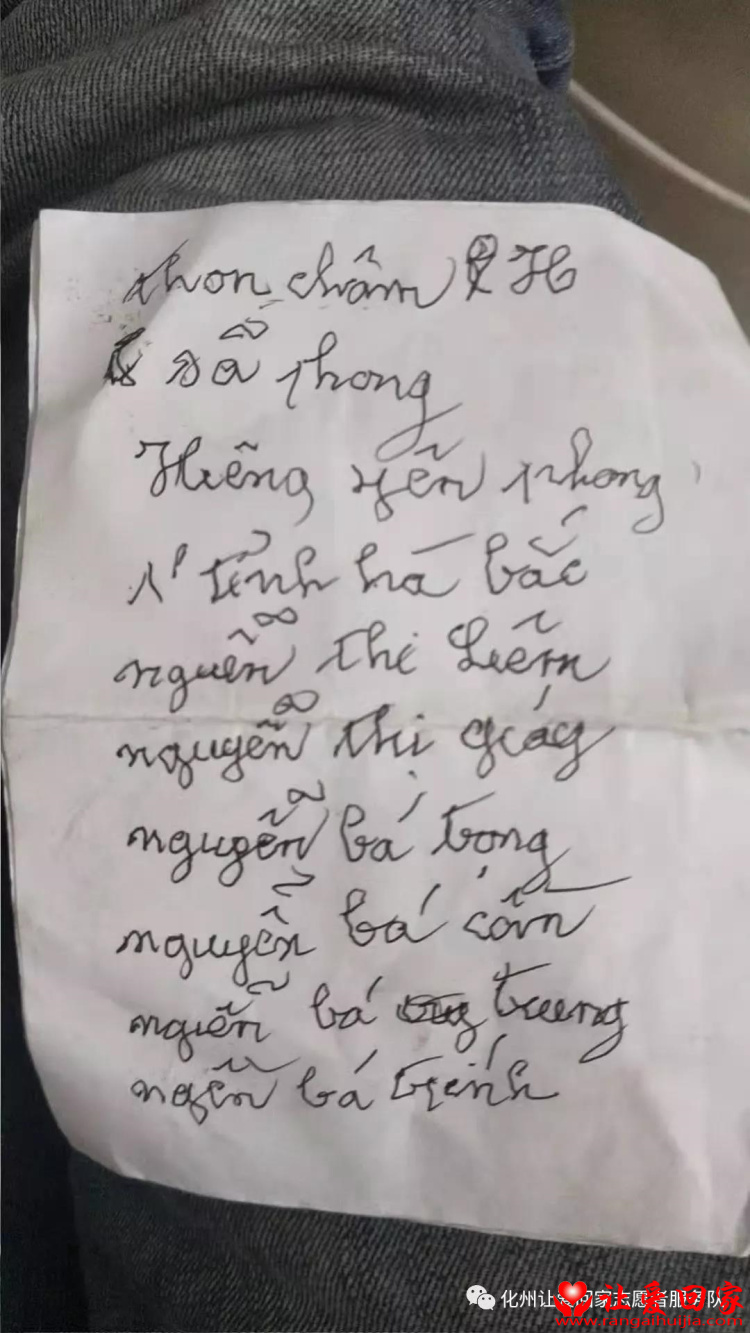 thon châm H
sẫ phong
Huêng yên phong
tỉnh há bắc
nguễn thi Liễm
nguyễn thị giáy
nguyễn bá trọng
nguyễn bá cồn
nguễn bá trung
ngễn bá trính
化州让爱回家志愿者服务队
让爱回家
www.rangaihuijia.com